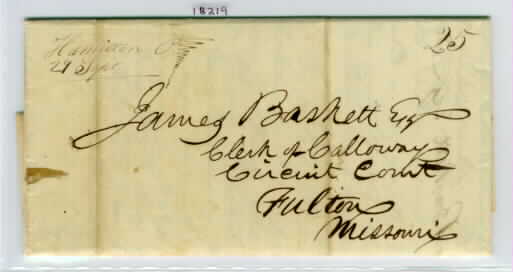 18219
Hamilton O
29 Sept
25
James Baskett Esq
Clerk of Calloway
Circuit Court
Fulton
Missouri